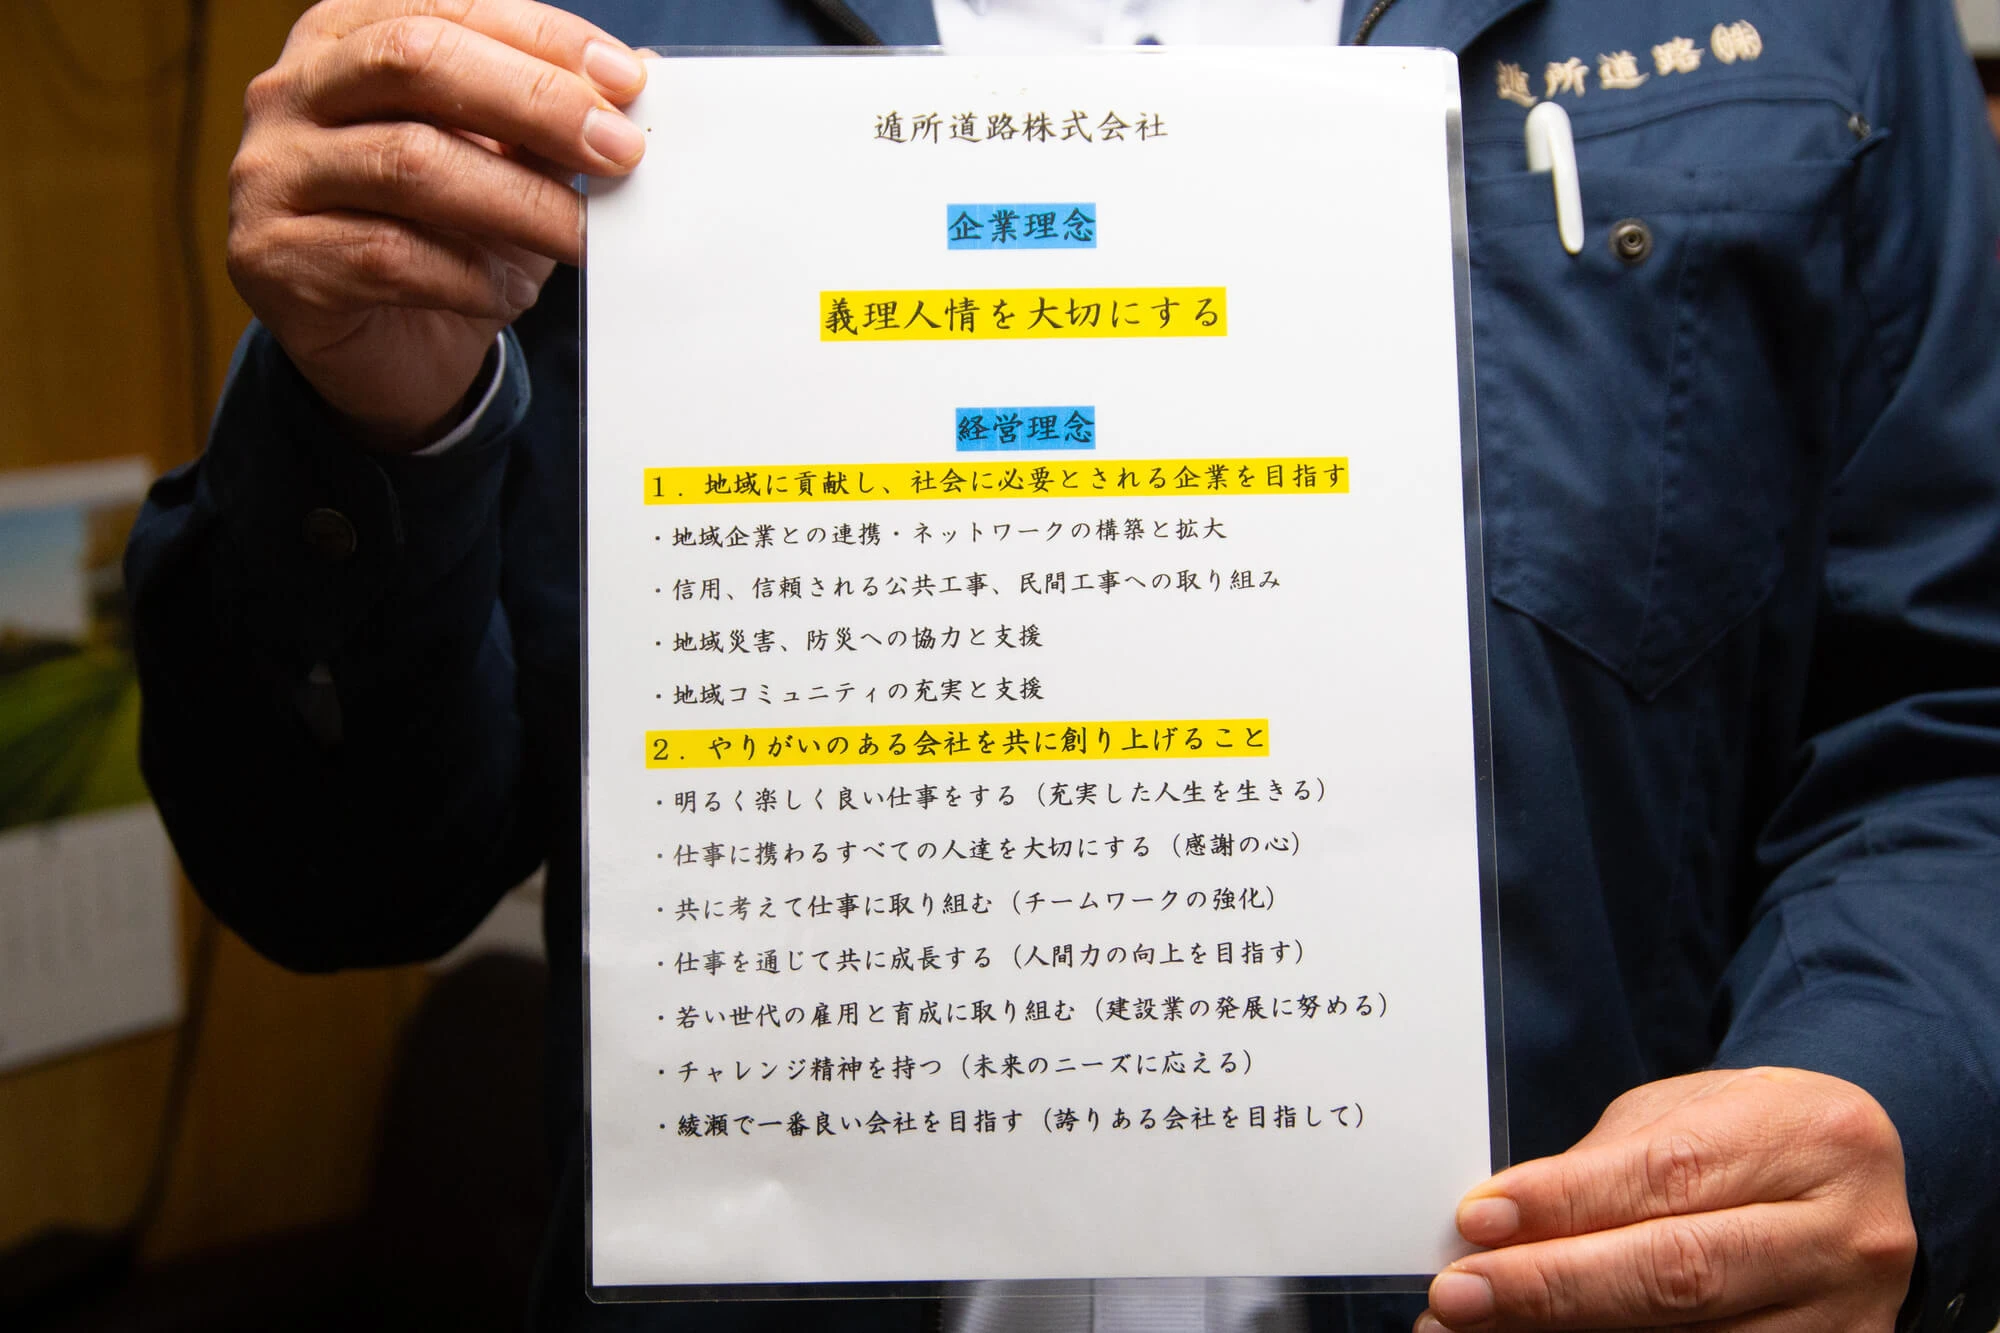 遁所道路㈱
遁所道路株式会社
企業理念
義理人情を大切にする
経営理念
１．地域に貢献し、社会に必要とされる企業を目指す
・地域企業との連携・ネットワークの構築と拡大
・信用、信頼される公共工事、民間工事への取り組み
・地域災害、防災への協力と支援
・地域コミュニティの充実と支援
２．やりがいのある会社を共に創り上げること
・明るく楽しく良い仕事をする（充実した人生を生きる）
・仕事に携わるすべての人達を大切にする（感謝の心）
・共に考えて仕事に取り組む（チームワークの強化）
・仕事を通じて共に成長する（人間力の向上を目指す）
・若い世代の雇用と育成に取り組む（建設業の発展に努める）
・チャレンジ精神を持つ（未来のニーズに応える）
・綾瀬で一番良い会社を目指す（誇りある会社を目指して）